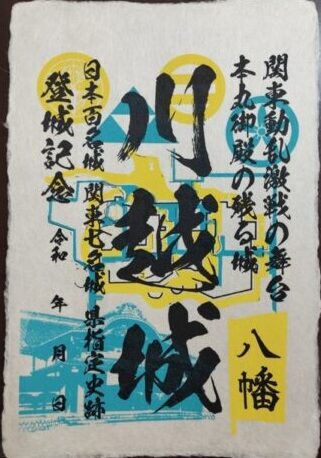 関東動乱激戦の舞台
本丸御殿の残る城
川越城
日本百名城 関東七名城 県指定史跡
登城記念 令和 年 月 日
八幡